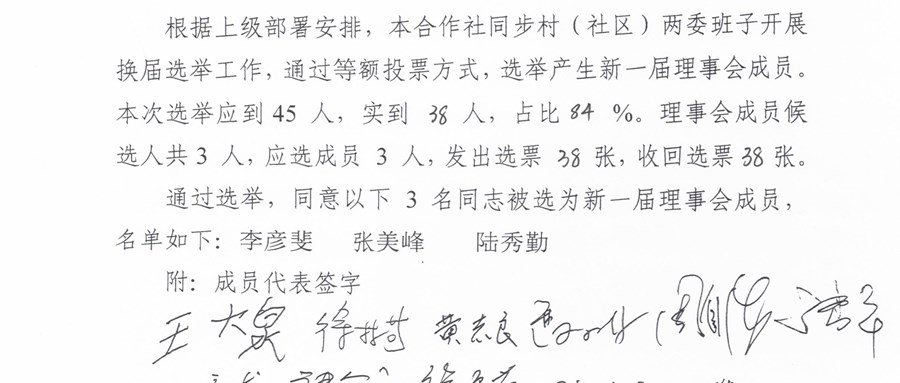 根据上级部署安排，本合作社同步村（社区）两委班子开展
换届选举工作，通过等额投票方式，选举产生新一届理事会成员。
本次选举应到 45 人，实到 38 人，占比 84 %。理事会成员候
选人共 3 人，应选成员 3 人，发出选票 38 张，收回选票 38 张。
通过选举，同意以下 3 名同志被选为新一届理事会成员，
名单如下：李彦斐 张美峰 陆秀勤
附：成员代表签字
王大昊 黄志良